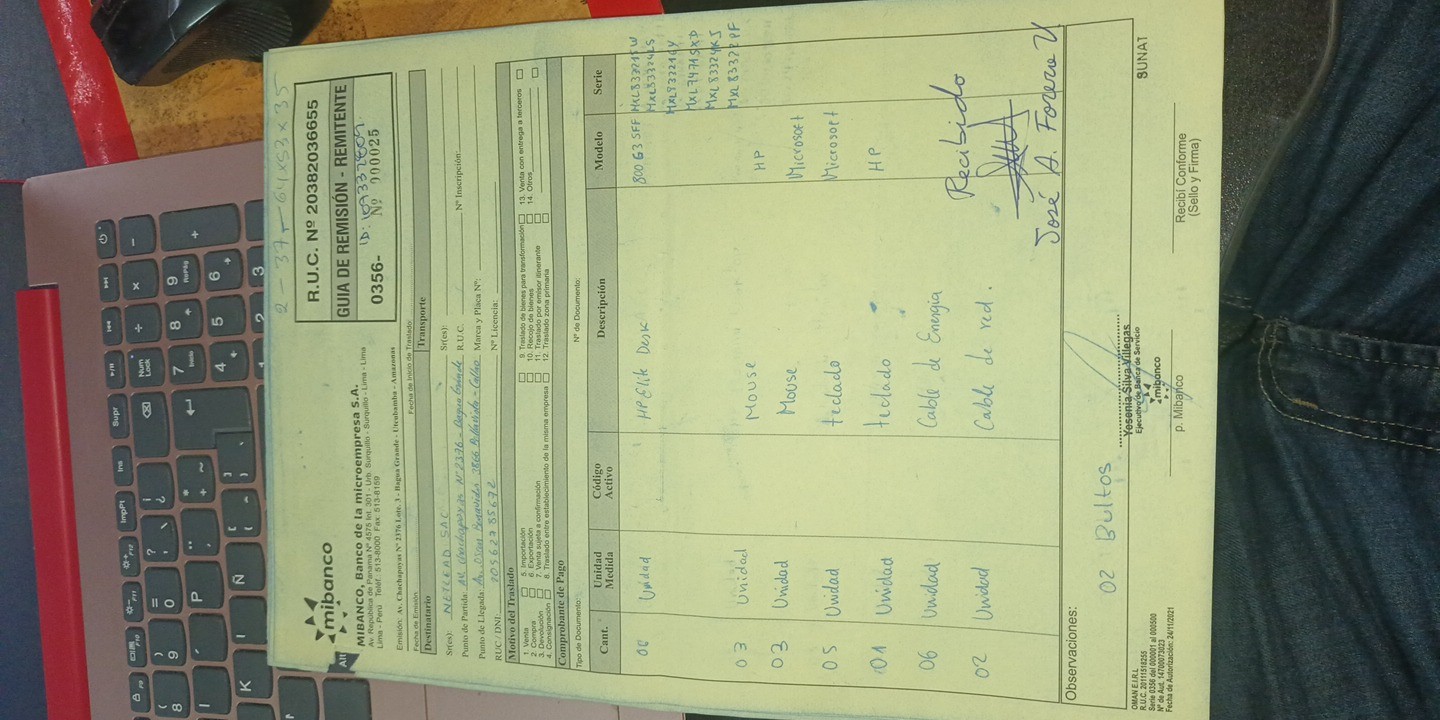 2 - 37 - 64 x 53 x 35
mibanco
MIBANCO, Banco de la microempresa S.A.
Av. República de Panamá Nº 4575 Int. 301 - Urb. Surquillo - Surquillo - Lima - Lima
Lima - Perú Teléf.: 513-8000 Fax: 513-8159
Emisión: Av. Chachapoyas Nº 2376 Lote. 3 - Bagua Grande - Utcubamba - Amazonas
R.U.C. Nº 20382036655
GUIA DE REMISIÓN - REMITENTE
0356- Nº 000025
Fecha de Emisión: Fecha de Inicio de Traslado:
Destinatario
Transporte
Sr(es): NETCEAD SAC
Sr(es):
Punto de Partida: AV. Chachapoyas Nº 2376 - Bagua Grande
R.U.C. Nº Inscripción:
Punto de Llegada: Av. Oscar Benavides 3866 Bellavista - Callao
Marca y Placa Nº:
RUC / DNI: 20562785672
Nº Licencia:
Motivo del Traslado
1. Venta 5. Importación 9. Traslado de bienes para transformación 13. Venta con entrega a terceros
2. Compra 6. Exportación 10. Recojo de bienes 14. Otros
3. Devolución 7. Venta sujeta a confirmación 11. Traslado por emisor itinerante
4. Consignación 8. Traslado entre establecimiento de la misma empresa 12. Traslado zona primaria
Comprobante de Pago
Tipo de Documento: Nº de Documento:
Cant. Unidad Medida Código Activo Descripción Modelo Serie
06 Unidad HP Elit Desk 800 G3 SFF
MXL7471SXD
MXL83324KJ
MXL83322PF
03 Unidad Mouse HP
03 Unidad Mouse Microsoft
05 Unidad teclado Microsoft
01 Unidad teclado HP
06 Unidad Cable de Energia
02 Unidad Cable de red.
Recibido
José A. Forero V
Observaciones:
02 Bultos
Yesenia Silva Villegas
Ejecutivo de Banca de Servicio
mibanco
p. Mibanco
Recibí Conforme
(Sello y Firma)
SUNAT
OMAN E.I.R.L
R.U.C. 20111518255
Serie 0356 del 000001 al 000500
Nº de Aut. 14700073023
Fecha de Autorización: 24/11/2021
Supr
Ins
ImpPt
Bloq
Num
Lock
7
Inicio
8
9
RePág
4
5
6
1
2
3
Ñ
P
K
Alt